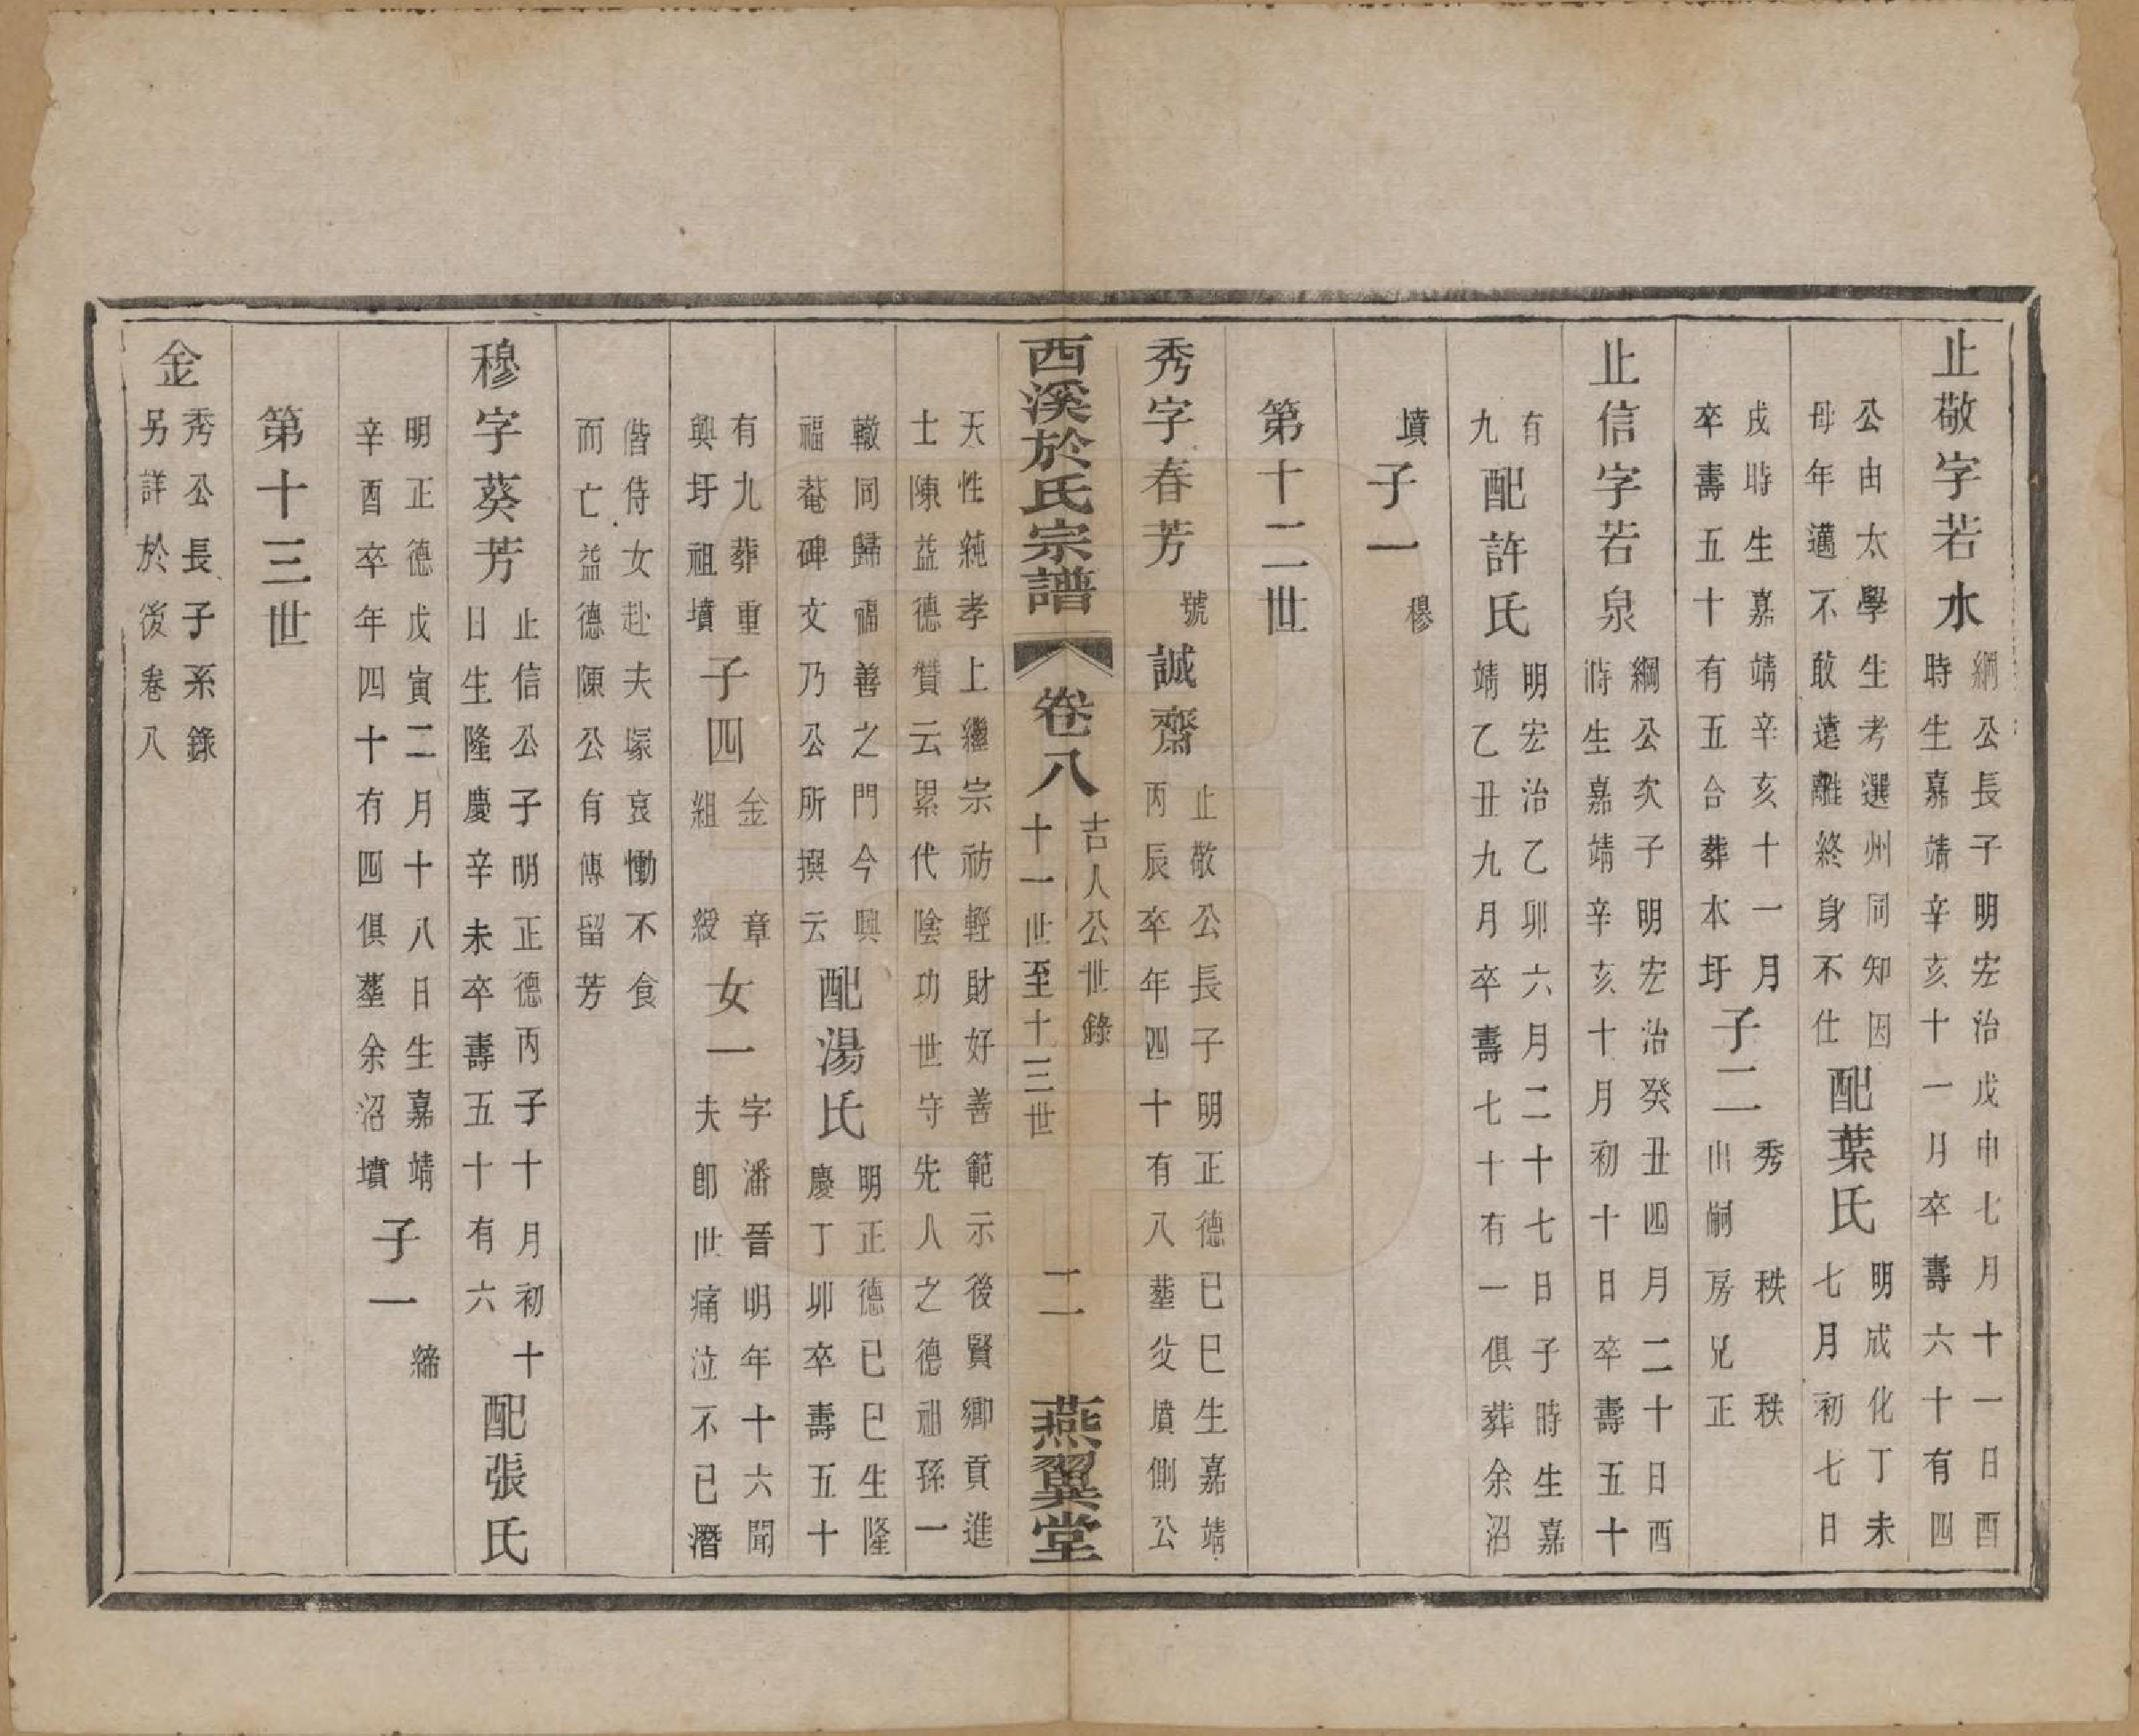 止敬字若水綱公長子明宏治戊申七月十一日酉
時生嘉靖辛亥十一月卒壽六十有四
公由太學生考選州同知因
母年邁不敢遠離終身不仕
配葉氏明成化丁未
七月初七日
戌時生嘉靖辛亥十一月
卒壽五十有五合葬本圩
子二秀 秩 秩
出嗣房兄正
止信字若泉綱公次子明宏治癸丑四月二十日酉
時生嘉靖辛亥十月初十日卒壽五十
有
九
配許氏明宏治乙卯六月二十七日子時生嘉
靖乙丑九月卒壽七十有一俱葬余沼
墳子一穆
第十二世
秀字春芳號誠齋止敬公長子明正德己巳生嘉靖
丙辰卒年四十有八塟父墳側公
西溪於氏宗譜 卷八 吉人公世錄
十一世至十三世 二 燕翼堂
天性純孝上繼宗祊輕財好善範示後賢鄉貢進
士陳益德贊云累代陰功世守先人之德祖孫一
轍同歸福善之門今興
福菴碑文乃公所撰云
配湯氏明正德己巳生隆
慶丁卯卒壽五十
有九葬重
興圩祖墳
子四金 章
組 綬
女一字潘晉明年十六聞
夫卽世痛泣不已潛
偕侍女赴夫塚哀慟不食
而亡益德陳公有傳留芳
穆字葵芳止信公子明正德丙子十月初十
日生隆慶辛未卒壽五十有六
配張氏
明正德戊寅二月十八日生嘉靖
辛酉卒年四十有四俱塟余沼墳
子一締
第十三世
金秀公長子系錄
另詳於後卷八